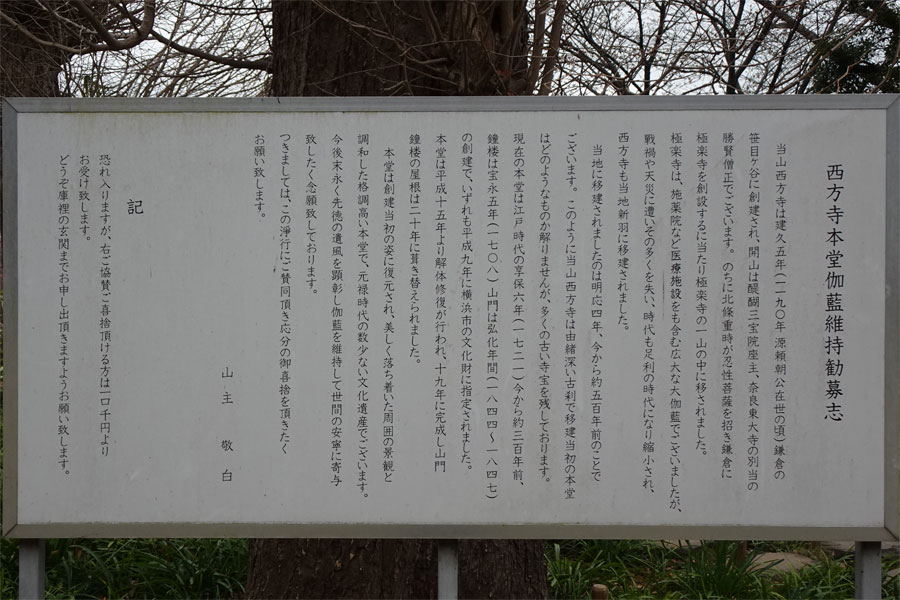 西方寺本堂伽藍維持勧募志
当山西方寺は建久五年(一一九〇年源頼朝公在世の頃)鎌倉の
笹目ヶ谷に創建され、開山は醍醐三宝院座主、奈良東大寺の別当の
勝賢僧正でございます。のちに北條重時が忍性菩薩を招き鎌倉に
極楽寺を創設するに当たり極楽寺の一山の中に移されました。
極楽寺は、施薬院など医療施設をも含む広大な大伽藍でございましたが、
戦禍や天災に遭いその多くを失い、時代も足利の時代になり縮小され、
西方寺も当地新羽に移建されました。
当地に移建されましたのは明応四年、今から約五百年前のことで
ございます。このように当山西方寺は由緒深い古刹で移建当初の本堂
はどのようなものか解りませんが、多くの古い寺宝を残しております。
現在の本堂は江戸時代の享保六年(一七二一)今から約三百年前、
鐘楼は宝永五年(一七〇八)山門は弘化年間(一八四四～一八四七)
の創建で、いずれも平成九年に横浜市の文化財に指定されました。
本堂は平成十五年より解体修復が行われ、十九年に完成し山門
鐘楼の屋根は二十年に葺き替えられました。
本堂は創建当初の姿に復元され、美しく落ち着いた周囲の景観と
調和した格調高い本堂で、元禄時代の数少ない文化遺産でございます。
今後末永く先徳の遺風を顕彰し伽藍を維持して世間の安寧に寄与
致したく念願致しております。
つきましては、この浄行にご賛同頂き応分の御喜捨を頂きたく
お願い致します。
山主 敬白
記
恐れ入りますが、右ご協賛ご喜捨頂ける方は一口千円より
お受け致します。
どうぞ庫裡の玄関までお申し出頂きますようお願い致します。